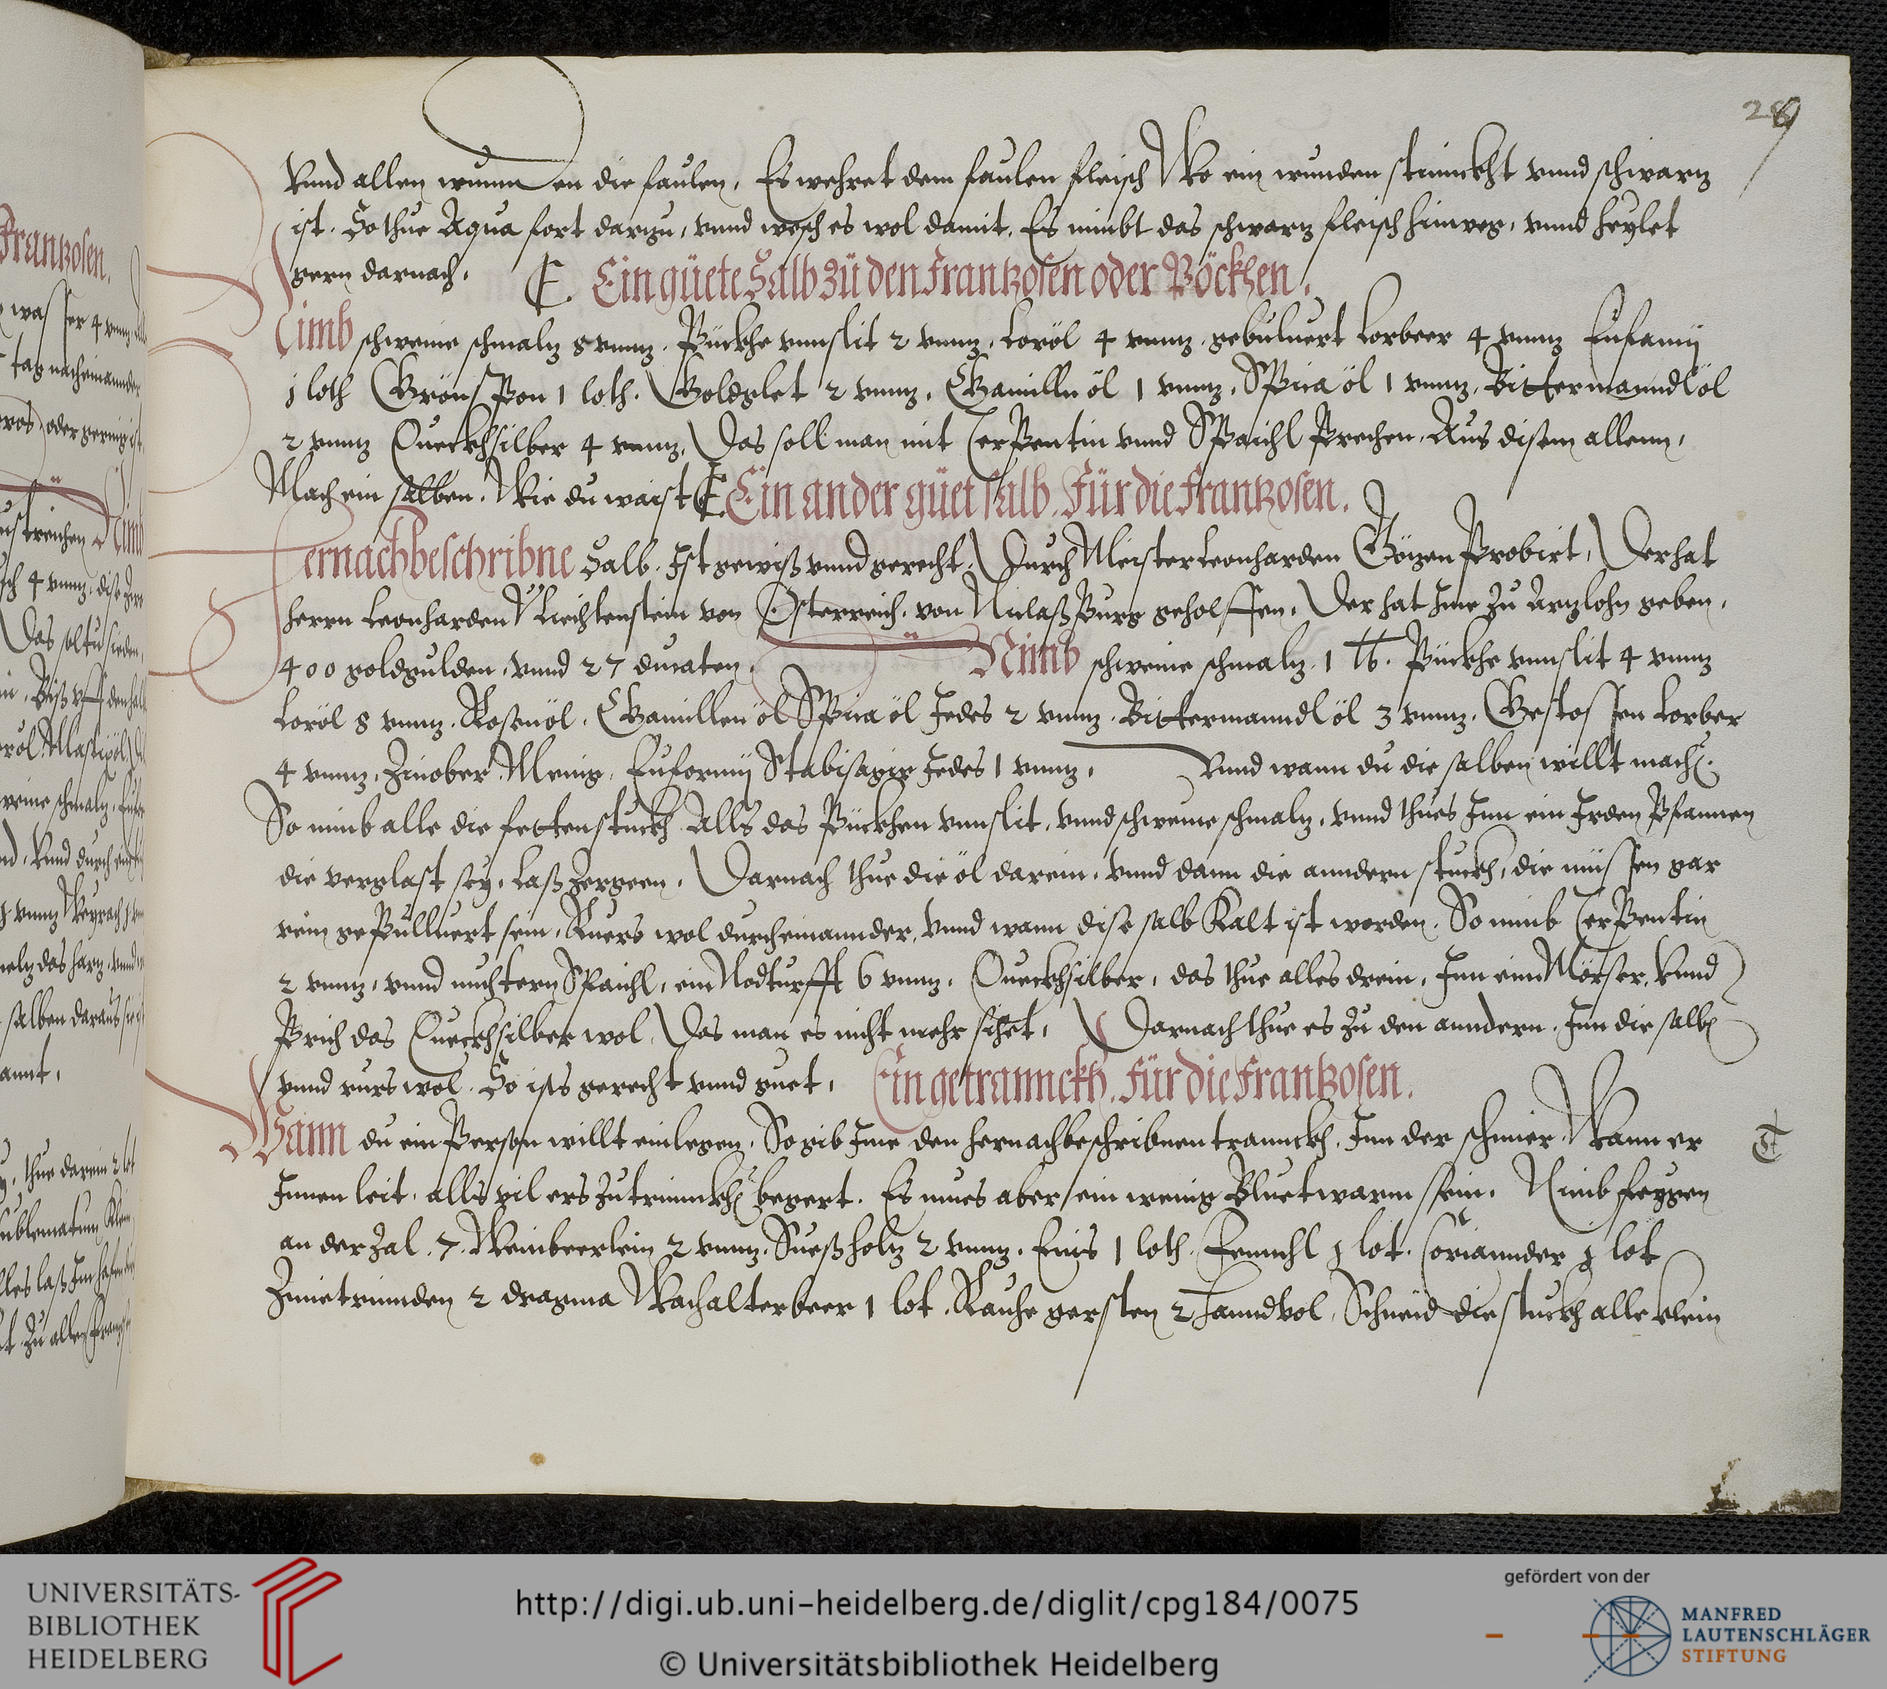 28
Vnnd allen wunnden die faulen, Es wehret dem faulen fleisch Wo ein wunden stinnckht vnnd schwartz
ist. So thue Aqua fort dartzu, vnnd wesch es wol damit. Es nimbt das schwartz fleisch hinweg, vnnd heylet
gern darnach. C. Ein güete Salb zü den Frantzosen oder Pöckhen.
Nimb schweine schmaltz 8 vnntz. Pückhe vnnslit 2 vnntz. Loröl 4 vnntz. gebuluert Lorbeer 4 vnntz
1 loth Grönspon 1 loth. Goldglet 2 vnntz. Gamilln öl 1 vnntz. Spica öl 1 vnntz. Bittermanndlöl
2 vnntz Queckhsilber 4 vnntz. Das soll man mit Terpentin vnnd Spaichl prechen. Aus disem allenn,
Mach ein salben. Wie du waist C. Ein ander güet salb. Für die Frantzosen.
Hernachbeschribne Salb. Ist gewiß vnnd gerecht. Durch Meister Leonharden Probirt, Der hat
herrn Leonharden V. Liechtenstein von Osterreich. von Niclaßpurg geholffen. Der hat Ime zu Artzlohn geben.
400 goldgulden. vnnd 27 ducaten. Nimb schweine schmaltz. 1 ℔. Pückhe vnnslit 4 vnntz
Loröl 8 vnntz. Rosenöl. Gamillen öl Spica öl Jedes 2 vnntz. Bittermanndlöl 3 vnntz. Gestossen Lorber
4 vnntz. Zinober. Menig. Euformy Stabisagie Jedes 1 vnntz. Vnnd wann du die salben willt mach.
So nimb alle die fetten stuckh Alls das Pückhen vnnslit, vnnd schweine schmaltz, vnnd thues Inn ein Irden Pfannen
die verglast sey. Laß zergeen. Darnach thue die öl darein. vnnd dann die anndern stuckh, die müssen gar
rein gepulluert sein. Ruers wol durcheinannder. Vnnd wann dise salb Kalt ist worden. So nimb Terpentin
2 vnntz. vnnd nuchtern Spaichl, ein Nodturfft 6 vnntz. Queckhsilber, das thue alles drein. Inn einn Mörser. Vnnd
Prich das Queckhsilber wol. Das man es nicht mehr sihet. Darnach thue es zu den anndern. Inn die salb
vnnd rurs wol. So ists gerecht vnnd guet. Ein getrannckh. Für die Frantzosen.
Wann du ein Person willt einlegen. So gib Ime den hernachbeschribnen tranncckh. Inn der schmier. Wann er
Innen leit. alls vil ers zutrinnckh begert. Es mues aber ein wenig Bluetwarm sein. Nimb feygen
an der Zal. 7. Weinbeerlein 2 vnntz. Sueßholtz 2 vnntz. Enis 1 loth. Fennchl j lot. Coriannder j lot
Zimetrinnden 2 dragma Wachalterbeer 1 lot. Rauhe gersten 2 hanndvol. Schneid die stuckh alle klein
UNIVERSITÄTS-
BIBLIOTHEK
HEIDELBERG
http://digi.ub.uni-heidelberg.de/diglit/cpg184/0075
© Universitätsbibliothek Heidelberg
gefördert von der
MANFRED
LAUTENSCHLÄGER
STIFTUNG